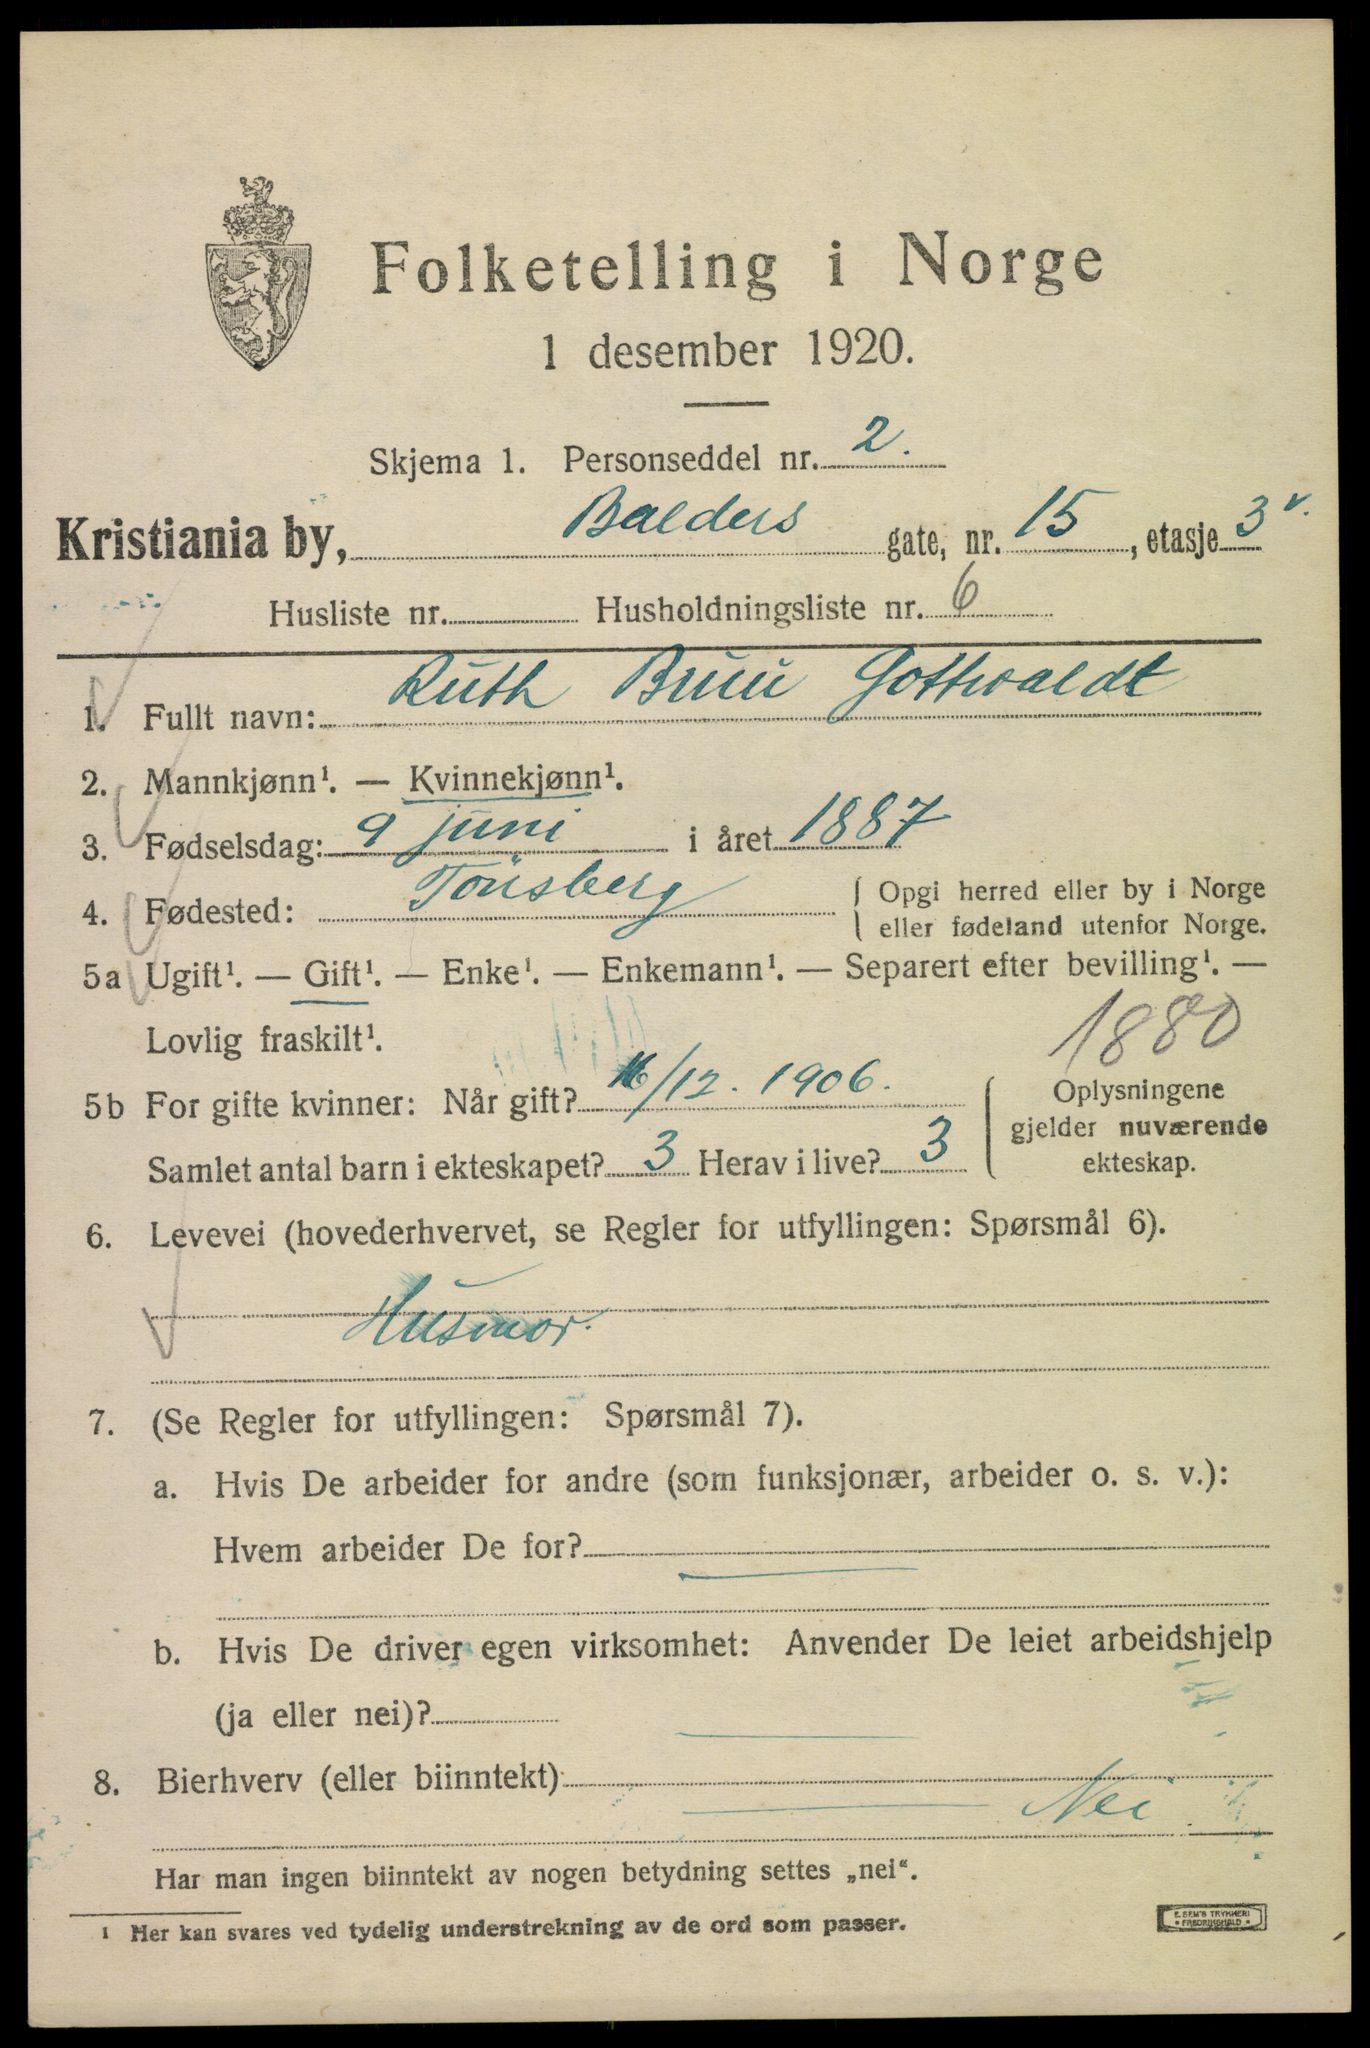 Folketelling i Norge
1 desember 1920.
Skjema 1. Personseddel nr. 2.
Kristiania by, Balders gate, nr. 15, etasje 3 v.
Husliste nr. Husholdningsliste nr. 6
1. Fullt navn: Ruth Bruu Gottwaldt
2. Mannkjønn¹. — Kvinnekjønn¹.
3. Fødselsdag: 9 juni i året 1887
4. Fødested: Tönsberg { Opgi herred eller by i Norge
eller fødeland utenfor Norge.
5a Ugift¹. — Gift¹. — Enke¹. — Enkemann¹. — Separert efter bevilling¹. —
Lovlig fraskilt¹. 1880
5b For gifte kvinner: Når gift? 16/12. 1906. { Oplysningene
gjelder nuværende
Samlet antal barn i ekteskapet? 3 Herav i live? 3 ekteskap.
6. Levevei (hovederhvervet, se Regler for utfyllingen: Spørsmål 6).
Husmor.
7. (Se Regler for utfyllingen: Spørsmål 7).
a. Hvis De arbeider for andre (som funksjonær, arbeider o. s. v.):
Hvem arbeider De for?
b. Hvis De driver egen virksomhet: Anvender De leiet arbeidshjelp
(ja eller nei)?
8. Bierhverv (eller biinntekt)
Nei
Har man ingen biinntekt av nogen betydning settes „nei“.
¹ Her kan svares ved tydelig understrekning av de ord som passer.
E. SEM'S TRYKKERI
• FREDRIKSHALD •